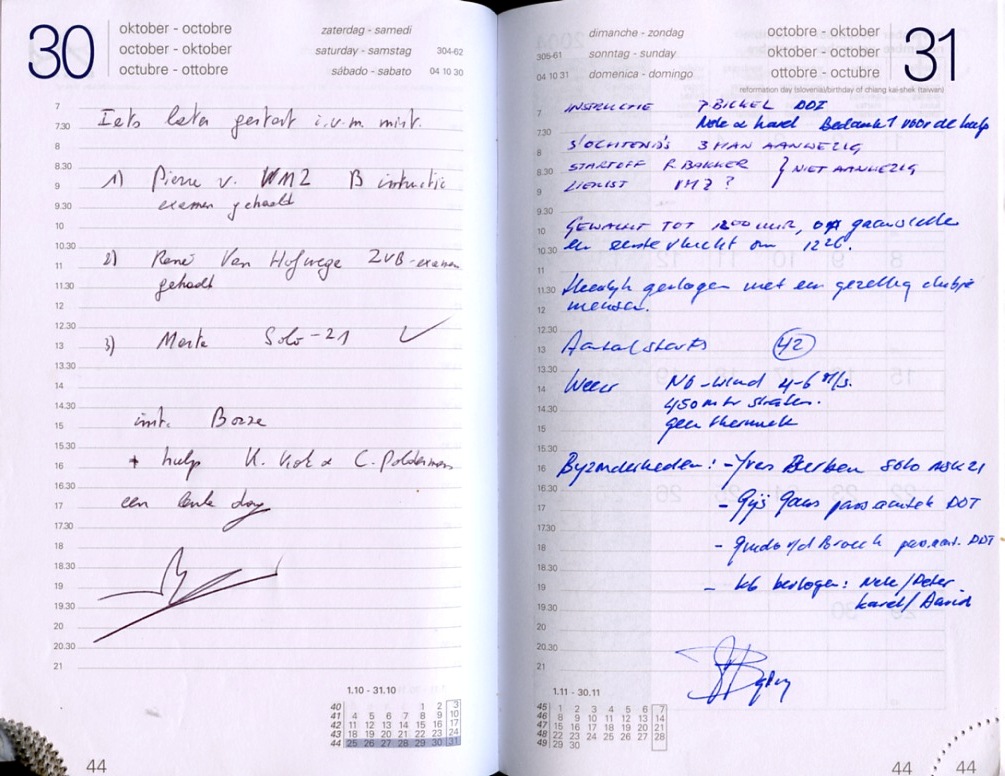 30
oktober - octobre
october - oktober
octubre - ottobre
zaterdag - samedi
saturday - samstag 304-62
sábado - sabato 04 10 30
7
7.30
8
8.30
9
9.30
10
10.30
11
11.30
12
12.30
13
13.30
14
14.30
15
15.30
16
16.30
17
17.30
18
18.30
19
19.30
20
20.30
21
Iets later gestart i.v.m. mist.
1) Pierre v. B instructie
examen gehaald
2) René Van Hofwege ZVB-examen
gehaald
3) Solo-21 ✓
inst.
+ hulp K. Kok & C. Polderman
een leuke dag
1.10 - 31.10
40 1 2 3
41 4 5 6 7 8 9 10
42 11 12 13 14 15 16 17
43 18 19 20 21 22 23 24
44 25 26 27 28 29 30 31
44
dimanche - zondag
305-61 sonntag - sunday
04 10 31 domenica - domingo
octobre - oktober
oktober - october
ottobre - octubre
31
reformation day (slovenia)/birthday of chiang kai-shek (taiwan)
7
7.30
8
8.30
9
9.30
10
10.30
11
11.30
12
12.30
13
13.30
14
14.30
15
15.30
16
16.30
17
17.30
18
18.30
19
19.30
20
20.30
21
INSTRUCTIE DDI
Nele & Karel Bedankt voor de hulp
S'OCHTENDS 3 MAN AANWEZIG
STARTOFF R. BAKKER } NIET AANWEZIG
LIERIST ?
GEWACHT TOT 1200 UUR,
en eerste vlucht om 1226.
Heerlijk gevlogen met een gezellig clubje
mensen.
Aantal starts 42
Weer NO-wind 4-6 m/s.
450 mtr straten.
geen thermiek
Byzonderheden: - Yves solo ASK21
- Gijs DDI
- Guido v/d Broeck DDI
- K6 bevlogen: Nele/Peter
Karel/David
1.11 - 30.11
45 1 2 3 4 5 6 7
46 8 9 10 11 12 13 14
47 15 16 17 18 19 20 21
48 22 23 24 25 26 27 28
49 29 30
44 44